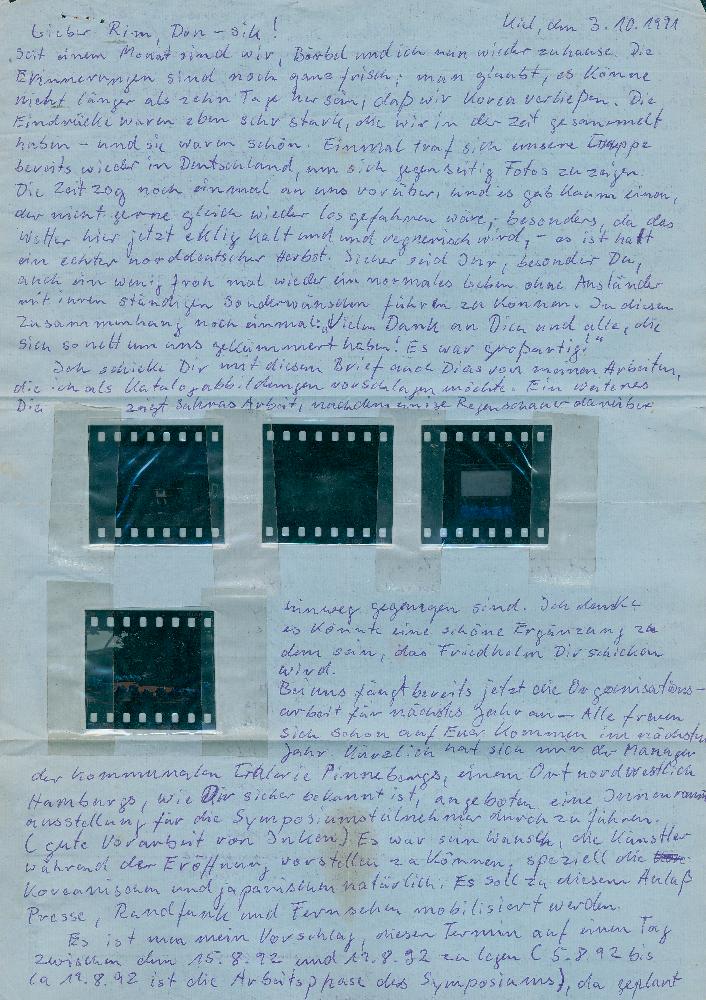 Lieber Rim, Don-sik! Kiel, den 3.10.1991
Seit einem Monat sind wir, Bärbel und ich nun wieder zuhause. Die
Erinnerungen sind noch ganz frisch; man glaubt, es könne
nicht länger als zehn Tage her sein, daß wir Korea verließen. Die
Eindrücke waren eben sehr stark, die wir in der Zeit gesammelt
haben – und sie waren schön. Einmal traf sich unsere Gruppe
bereits wieder in Deutschland, um sich gegenseitig Fotos zu zeigen.
Die Zeit zog noch einmal an uns vorüber, und es gab kaum einen,
der nicht gerne gleich wieder losgefahren wäre, besonders, da das
Wetter hier jetzt eklig kalt und und regnerisch wird, – es ist halt
ein echter norddeutscher Herbst. Sicher seid Ihr, besonder Du,
auch ein wenig froh mal wieder ein normales Leben ohne Ausländer
mit ihren ständigen Sonderwünschen führen zu können. In diesem
Zusammenhang noch einmal: "Vielen Dank an Dich und alle, die
sich so nett um uns gekümmert haben! Es war großartig!"
Ich schicke Dir mit diesem Brief auch Dias von meinen Arbeiten,
die ich als Katalogabbildungen vorschlagen möchte. Ein weiteres
Dia zeigt Arbeit, nachdem einige Regenschauer darüber
hinweg gegangen sind. Ich denke
es könnte eine schöne Ergänzung zu
dem sein, das Friedhelm Dir schicken
wird.
Bei uns fängt bereits jetzt die Organisations-
arbeit für nächstes Jahr an – Alle freuen
sich schon auf Euer Kommen im nächsten
Jahr. Kürzlich hat sich mir der Manager
der kommunalen Galerie Pinnebergs, einem Ort nordwestlich
Hamburgs, wie Dir sicher bekannt ist, angeboten eine Innenraum
ausstellung für die Symposiumsteilnehmer durchzuführen.
(gute Vorarbeit von Inken) Es war sein Wunsch, die Künstler
während der Eröffnung vorstellen zu können, speziell die
Koreanischen und japanischen natürlich. Es soll zu diesem Anlaß
Presse, Rundfunk und Fernsehen mobilisiert werden.
Es ist nun mein Vorschlag, diesen Termin auf einen Tag
zwischen dem 15.8.92 und 19.8.92 zu legen (5.8.92 bis
ca 19.8.92 ist die Arbeitsphase des Symposiums), da geplant